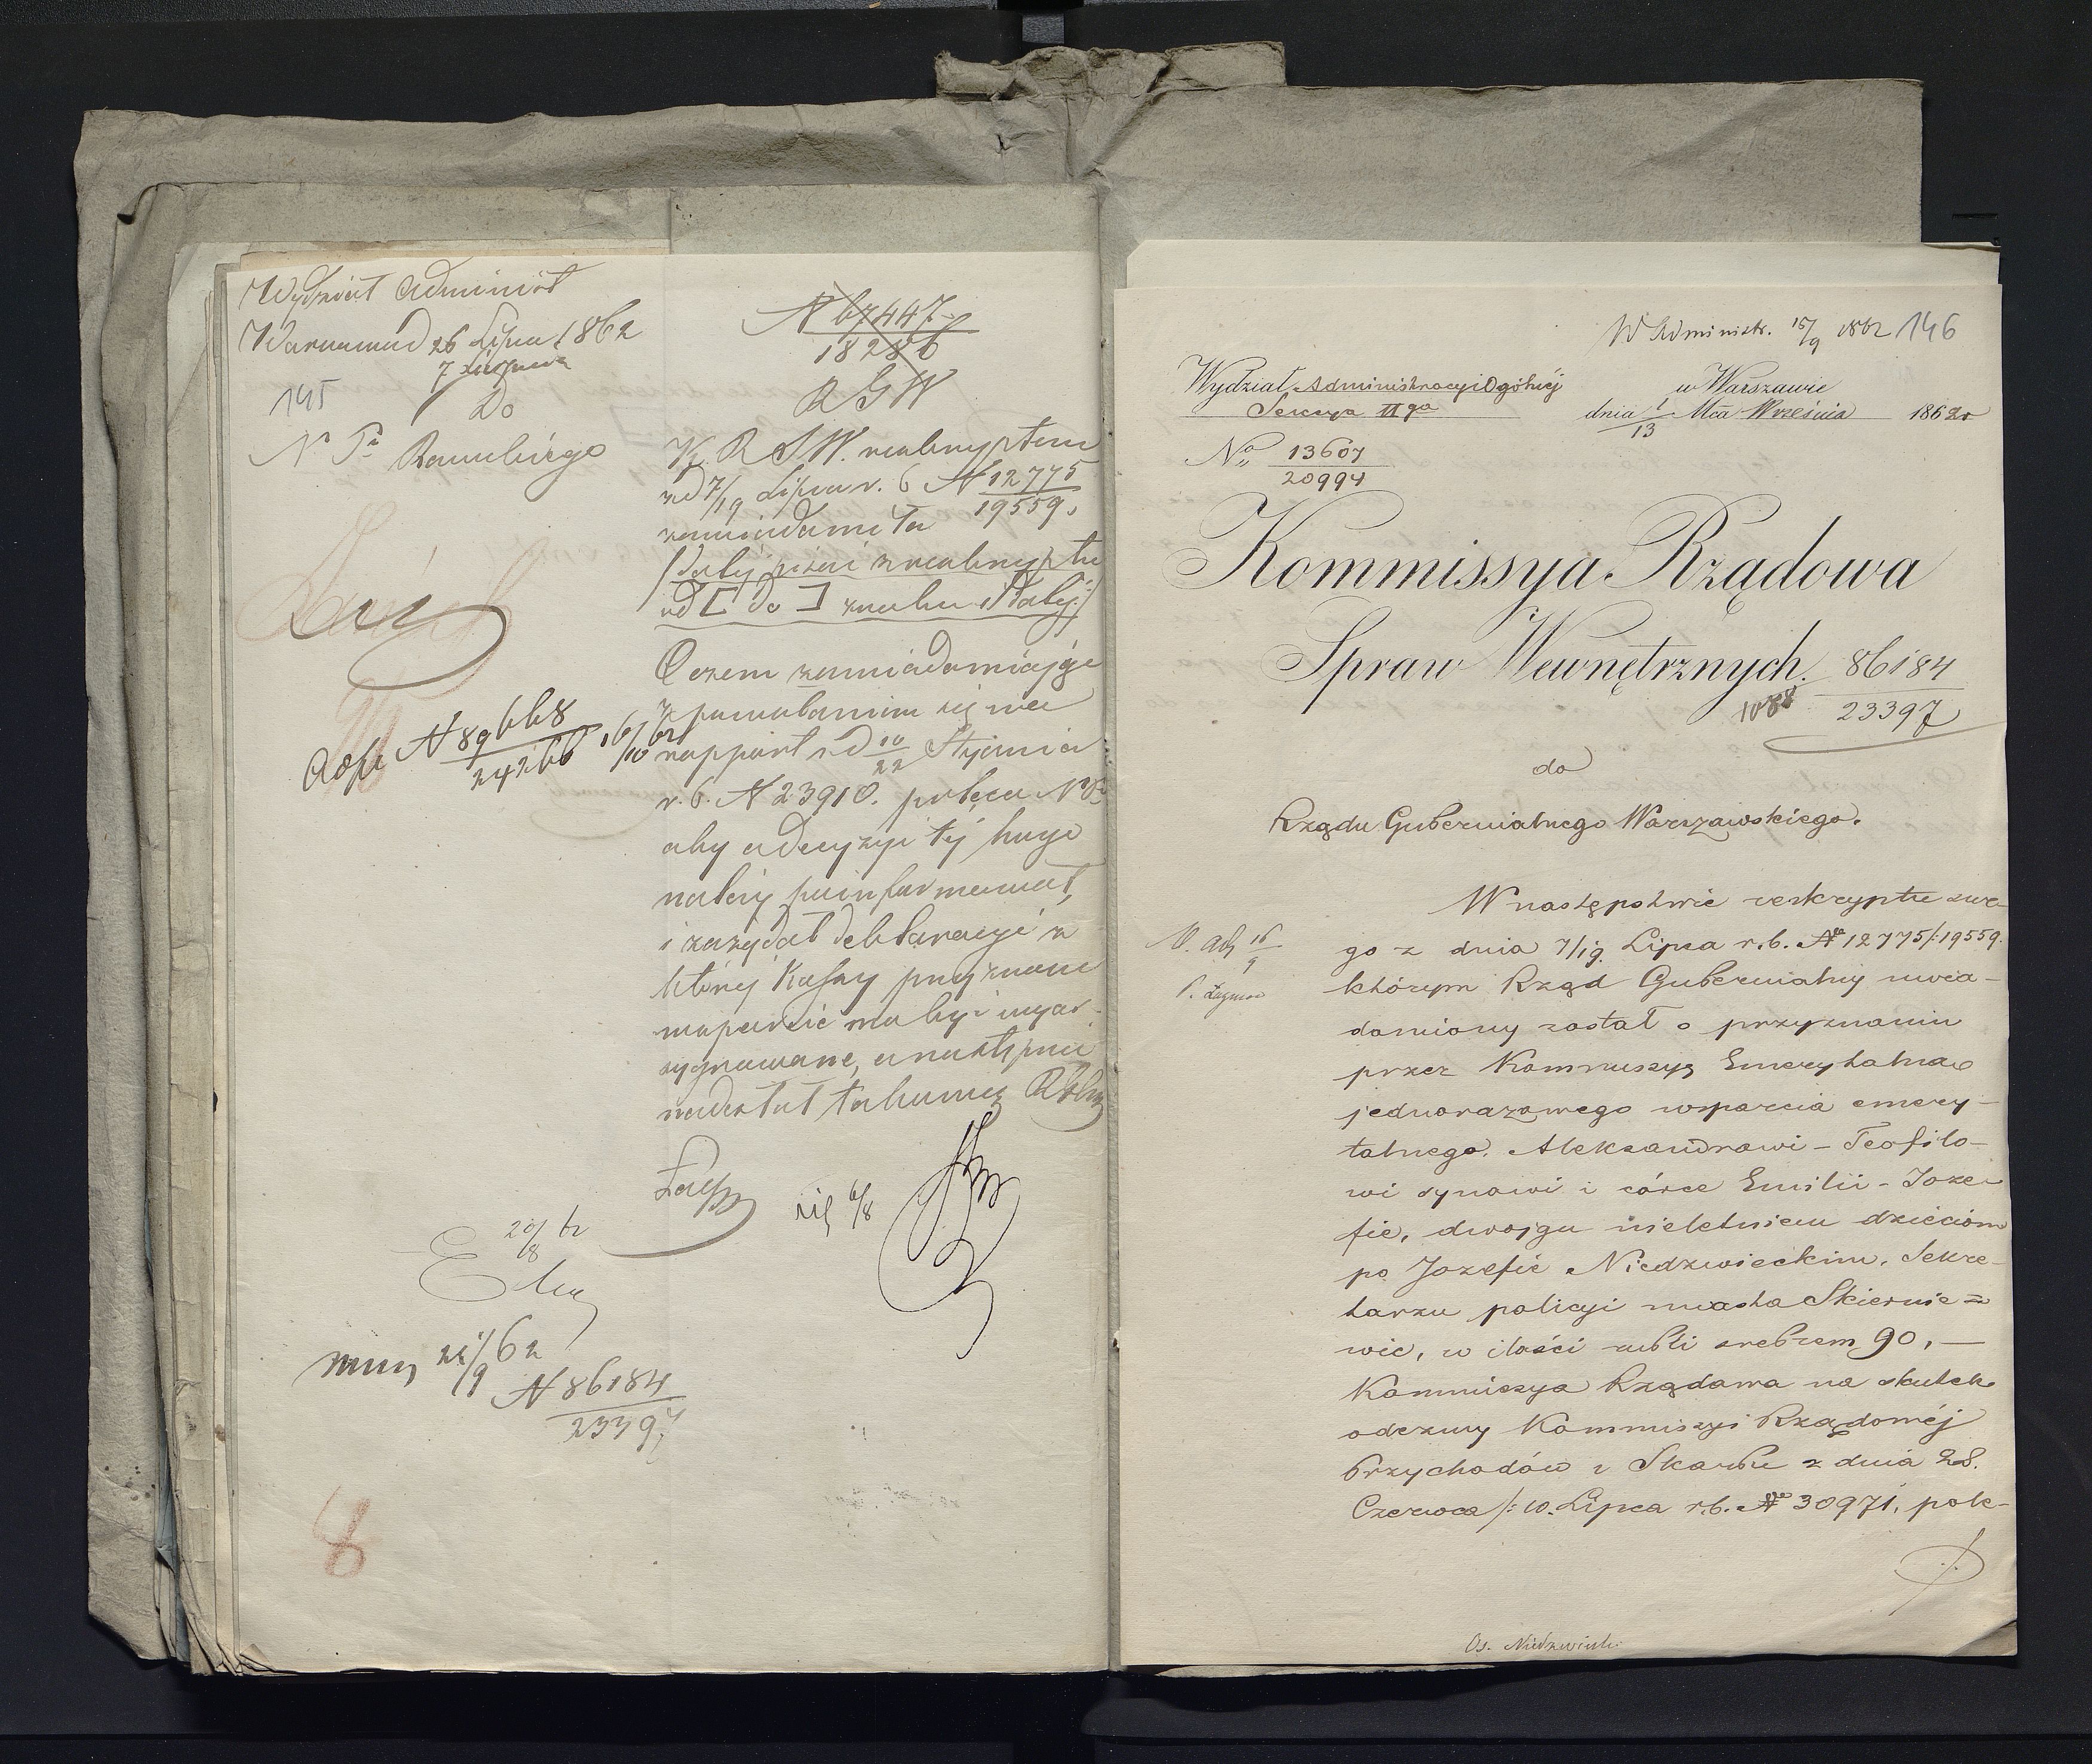 Wydział Administ
Warszawa d 26 Lipca 1862
7 Sierpnia
145
Do
N Pa Rawskiego
N 67447
18286
R G W
K. R. S W. reskryptem
z d 7/19 Lipca r. b N 12775
19559,
zawiadamia
(dalej pisać z reskryptu
od [ do ] znaku i dalej)
O czem zawiadamiając
z powołaniem się na
rapport z d 10/22 Stycznia
r. b. N 23910. poleca NP
aby o decyzyi tej kogo
należy poinformował,
i zażądał deklaracyi z
której Kassy przyznane
wsparcie ma być wyas-
sygnowane, a następnie
nadesłał takową RGlnu
N 89668
24266
16/10 62
6/8
20/8 62
21/9 62
N 86184
23397
8
W Administr. 15/9 1862 146
Wydział Administracyi Ogólnéj
Sekcya IIga
w Warszawie
dnia 1/13 Mca Września 1862 r
No 13607
20994
Kommissya Rządowa
Spraw Wewnętrznych.
86184
23397
do
Rządu Gubernialnego Warszawskiego.
16/9
W następstwie reskryptu swe-
go z dnia 7/19. Lipca r.b. No 12775/:19559.
którym Rząd Gubernialny uwia-
domiony został o przyznaniu
przez Kommissyę Emerytalną
jednorazowego wsparcia emery-
talnego. Aleksandrowi-Teofilo-
wi synowi i córce Emilii-Joze-
fie, dwojgu nieletniem dzieciom
po Jozefie Niedzwieckim, Sekre-
tarzu policyi miasta Skiernie=
wic, w ilości rubli srebrem 90, —
Kommissya Rządowa na skutek
odezwy Kommissyi Rządowéj
Przychodów i Skarbu z dnia 28.
Czerwca/:10. Lipca r.b. No 30971, pole-
Os. Niedzwiecki